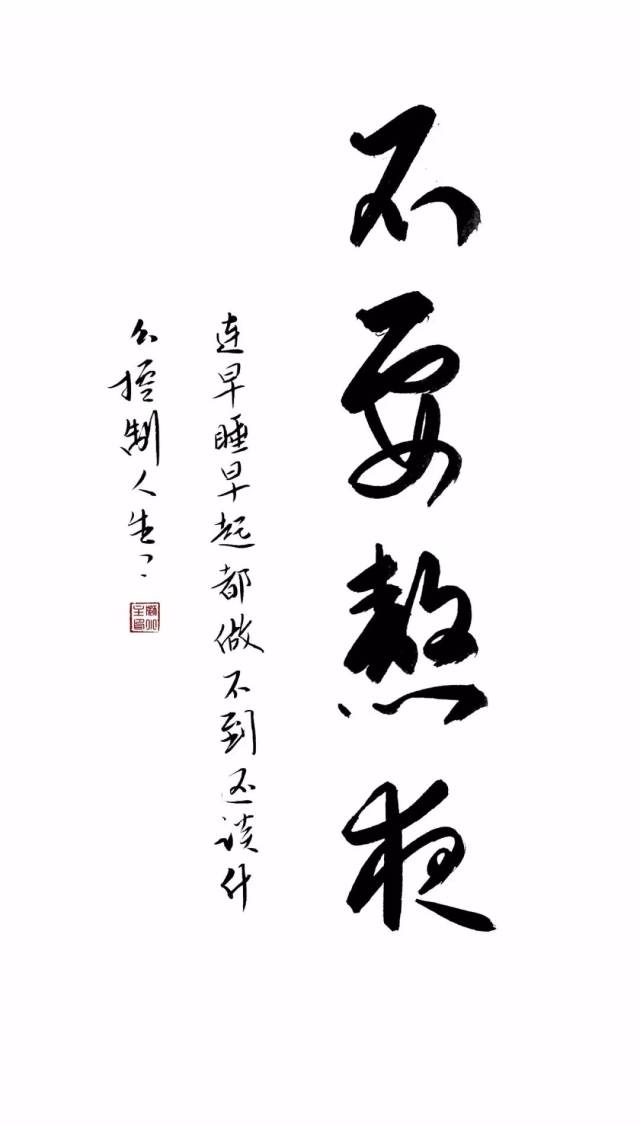 不要熬夜
连早睡早起都做不到还谈什
么控制人生